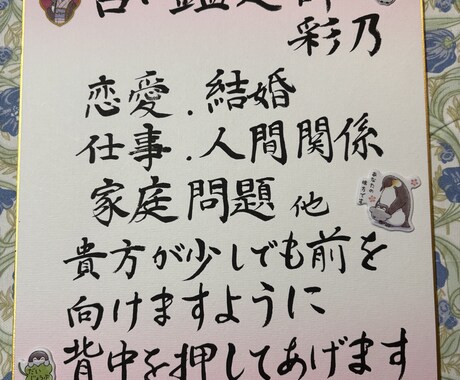 占い鑑定師
彩乃
恋愛.結婚
仕事.人間関係
家庭問題 他
貴方が少しでも前を
向けますように
背中を押してあげます